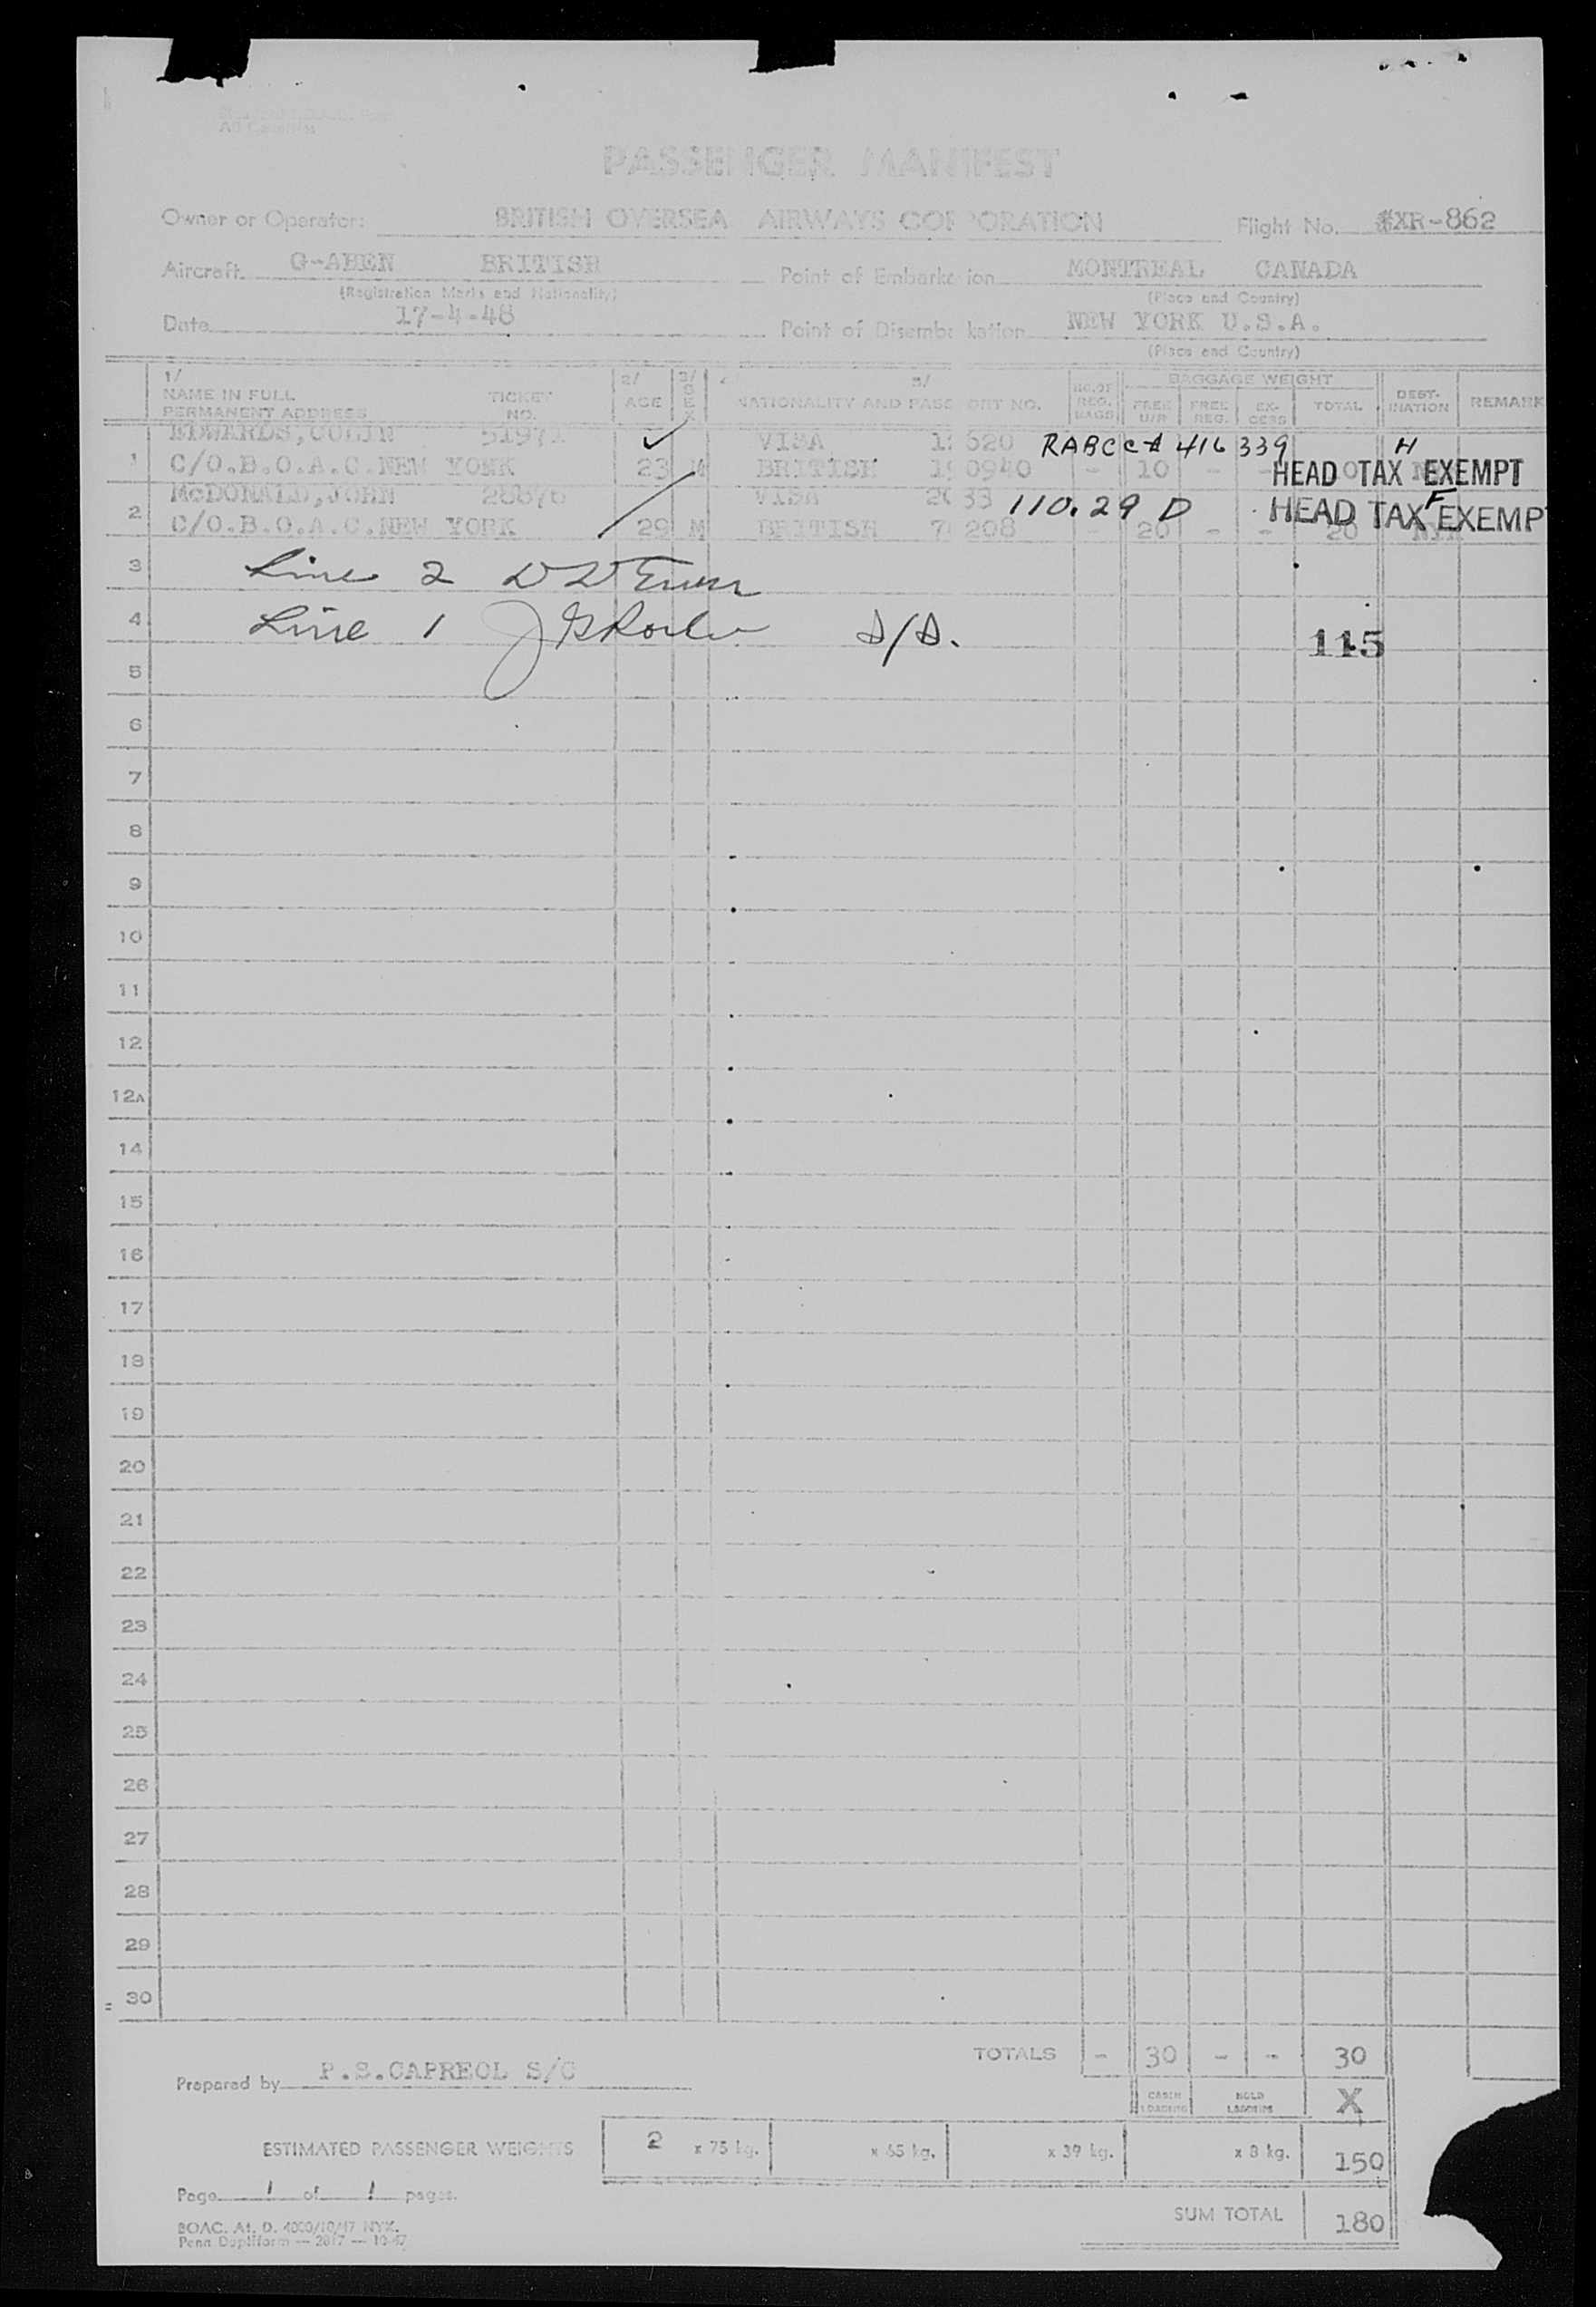 PASSENGER MANIFEST
Owner or Operator: BRITISH OVERSEA AIRWAYS CORPORATION Flight No. XR-862
Aircraft G-ABEN BRITISH Point of Embarka ion MONTREAL CANADA
(Registration Marks and Nationality) (Place and Country)
Date 17-4-48 Point of Disemba kation NEW YORK U.S.A.
(Place and Country)
1/ NAME IN FULL PERMANENT ADDRESS TICKET NO. 2/ AGE 3/ SEX NATIONALITY AND PASS ORT NO. NO. OF REG. BAGS BAGGAGE WEIGHT FREE U/R FREE REG. EX-CESS TOTAL DEST-INATION REMARK
EDWARDS, COLIN 51971 ✓ VISA 620 416 339 H
1 C/O.B.O.A.C.NEW YORK 23 M BRITISH 0940 - 10 - - HEAD TAX EXEMPT
McDONALD, JOHN 28876 VISA 33 110.29 D F
2 C/O.B.O.A.C.NEW YORK 29 M BRITISH 208 - 20 - - 20 HEAD TAX EXEMP
3 Line 2
4 Line 1
115
5
6
7
8
9
10
11
12
12A
14
15
16
17
18
19
20
21
22
23
24
25
26
27
28
29
30
TOTALS - 30 - - 30
Prepared by P.S.CAPREOL S/C
CABIN LOADING HOLD LOADING X
ESTIMATED PASSENGER WEIGHTS 2 x 75 kg. x 65 kg. x 39 kg. x 8 kg. 150
Page 1 of 1 pages.
SUM TOTAL 180
BOAC. A1. D. 4000/10/47 NYK.
Penn Dupliform — 2817 — 10-47